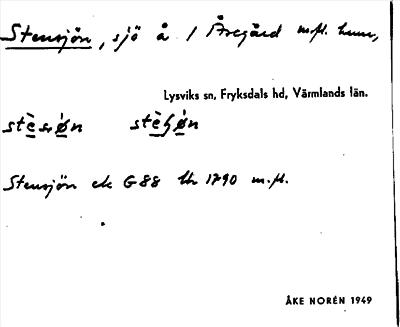 Stensjön, sjö å 1 Åregård m.fl. hem,
Lysviks sn, Fryksdals hd, Värmlands län.
Stensjön ek G88 lh 1790 m.fl.
ÅKE NORÉN 1949